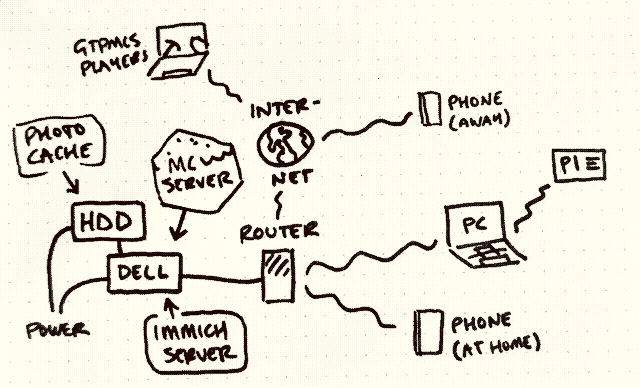 GTPMCS
PLAYERS
INTER-
NET
PHONE
(AWAY)
PHOTO
CACHE
MC
SERVER
PIE
HDD
ROUTER
PC
DELL
POWER
IMMICH
SERVER
PHONE
(AT HOME)